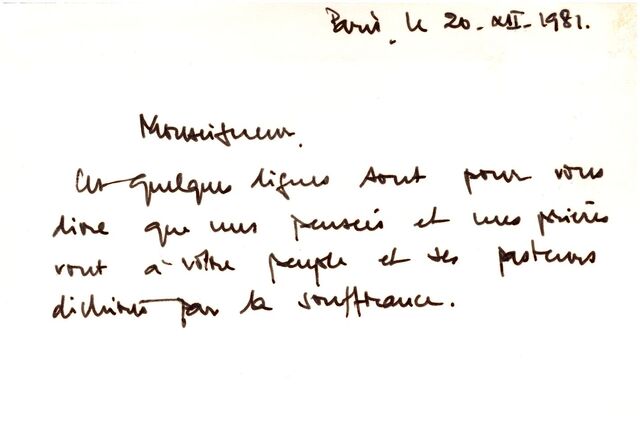 Paris, le 20-XII-1981.
Monseigneur,
Ces quelques lignes sont pour vous
dire que mes pensées et mes prières
vont à votre peuple et ses pasteurs
déchirés par la souffrance.